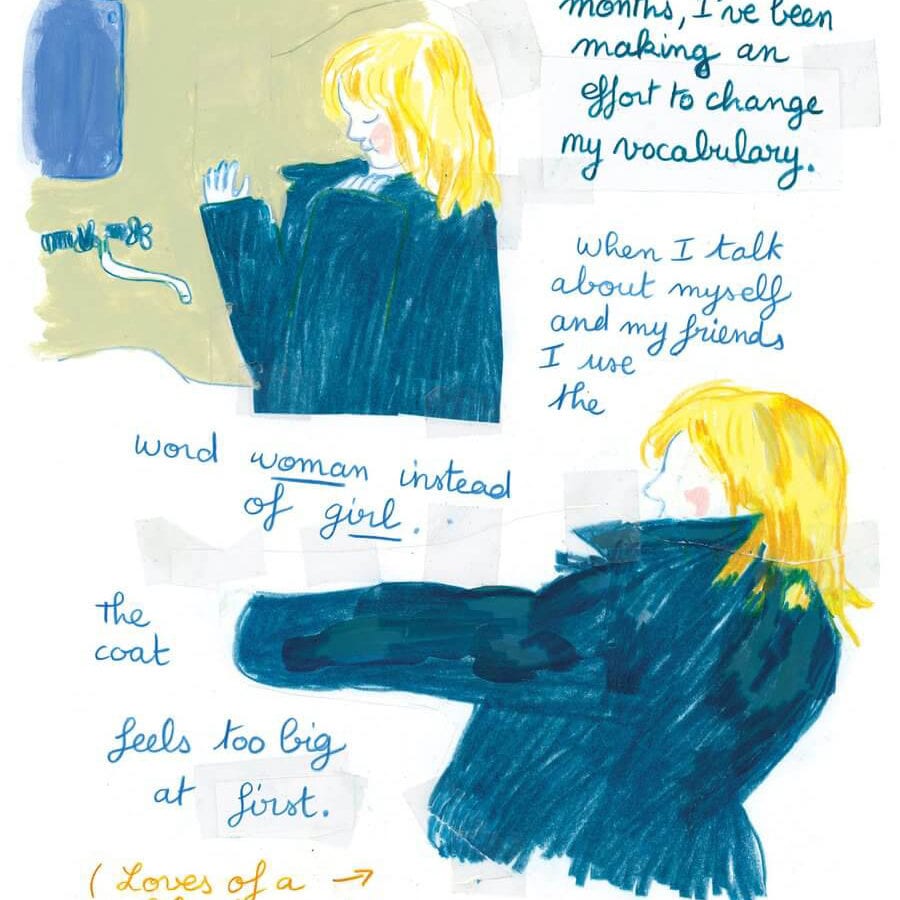 months, I've been
making an
effort to change
my vocabulary.
when I talk
about myself
and my friends
I use
the
word woman instead
of girl.
The
coat
feels too big
at first.
( Loves of a →